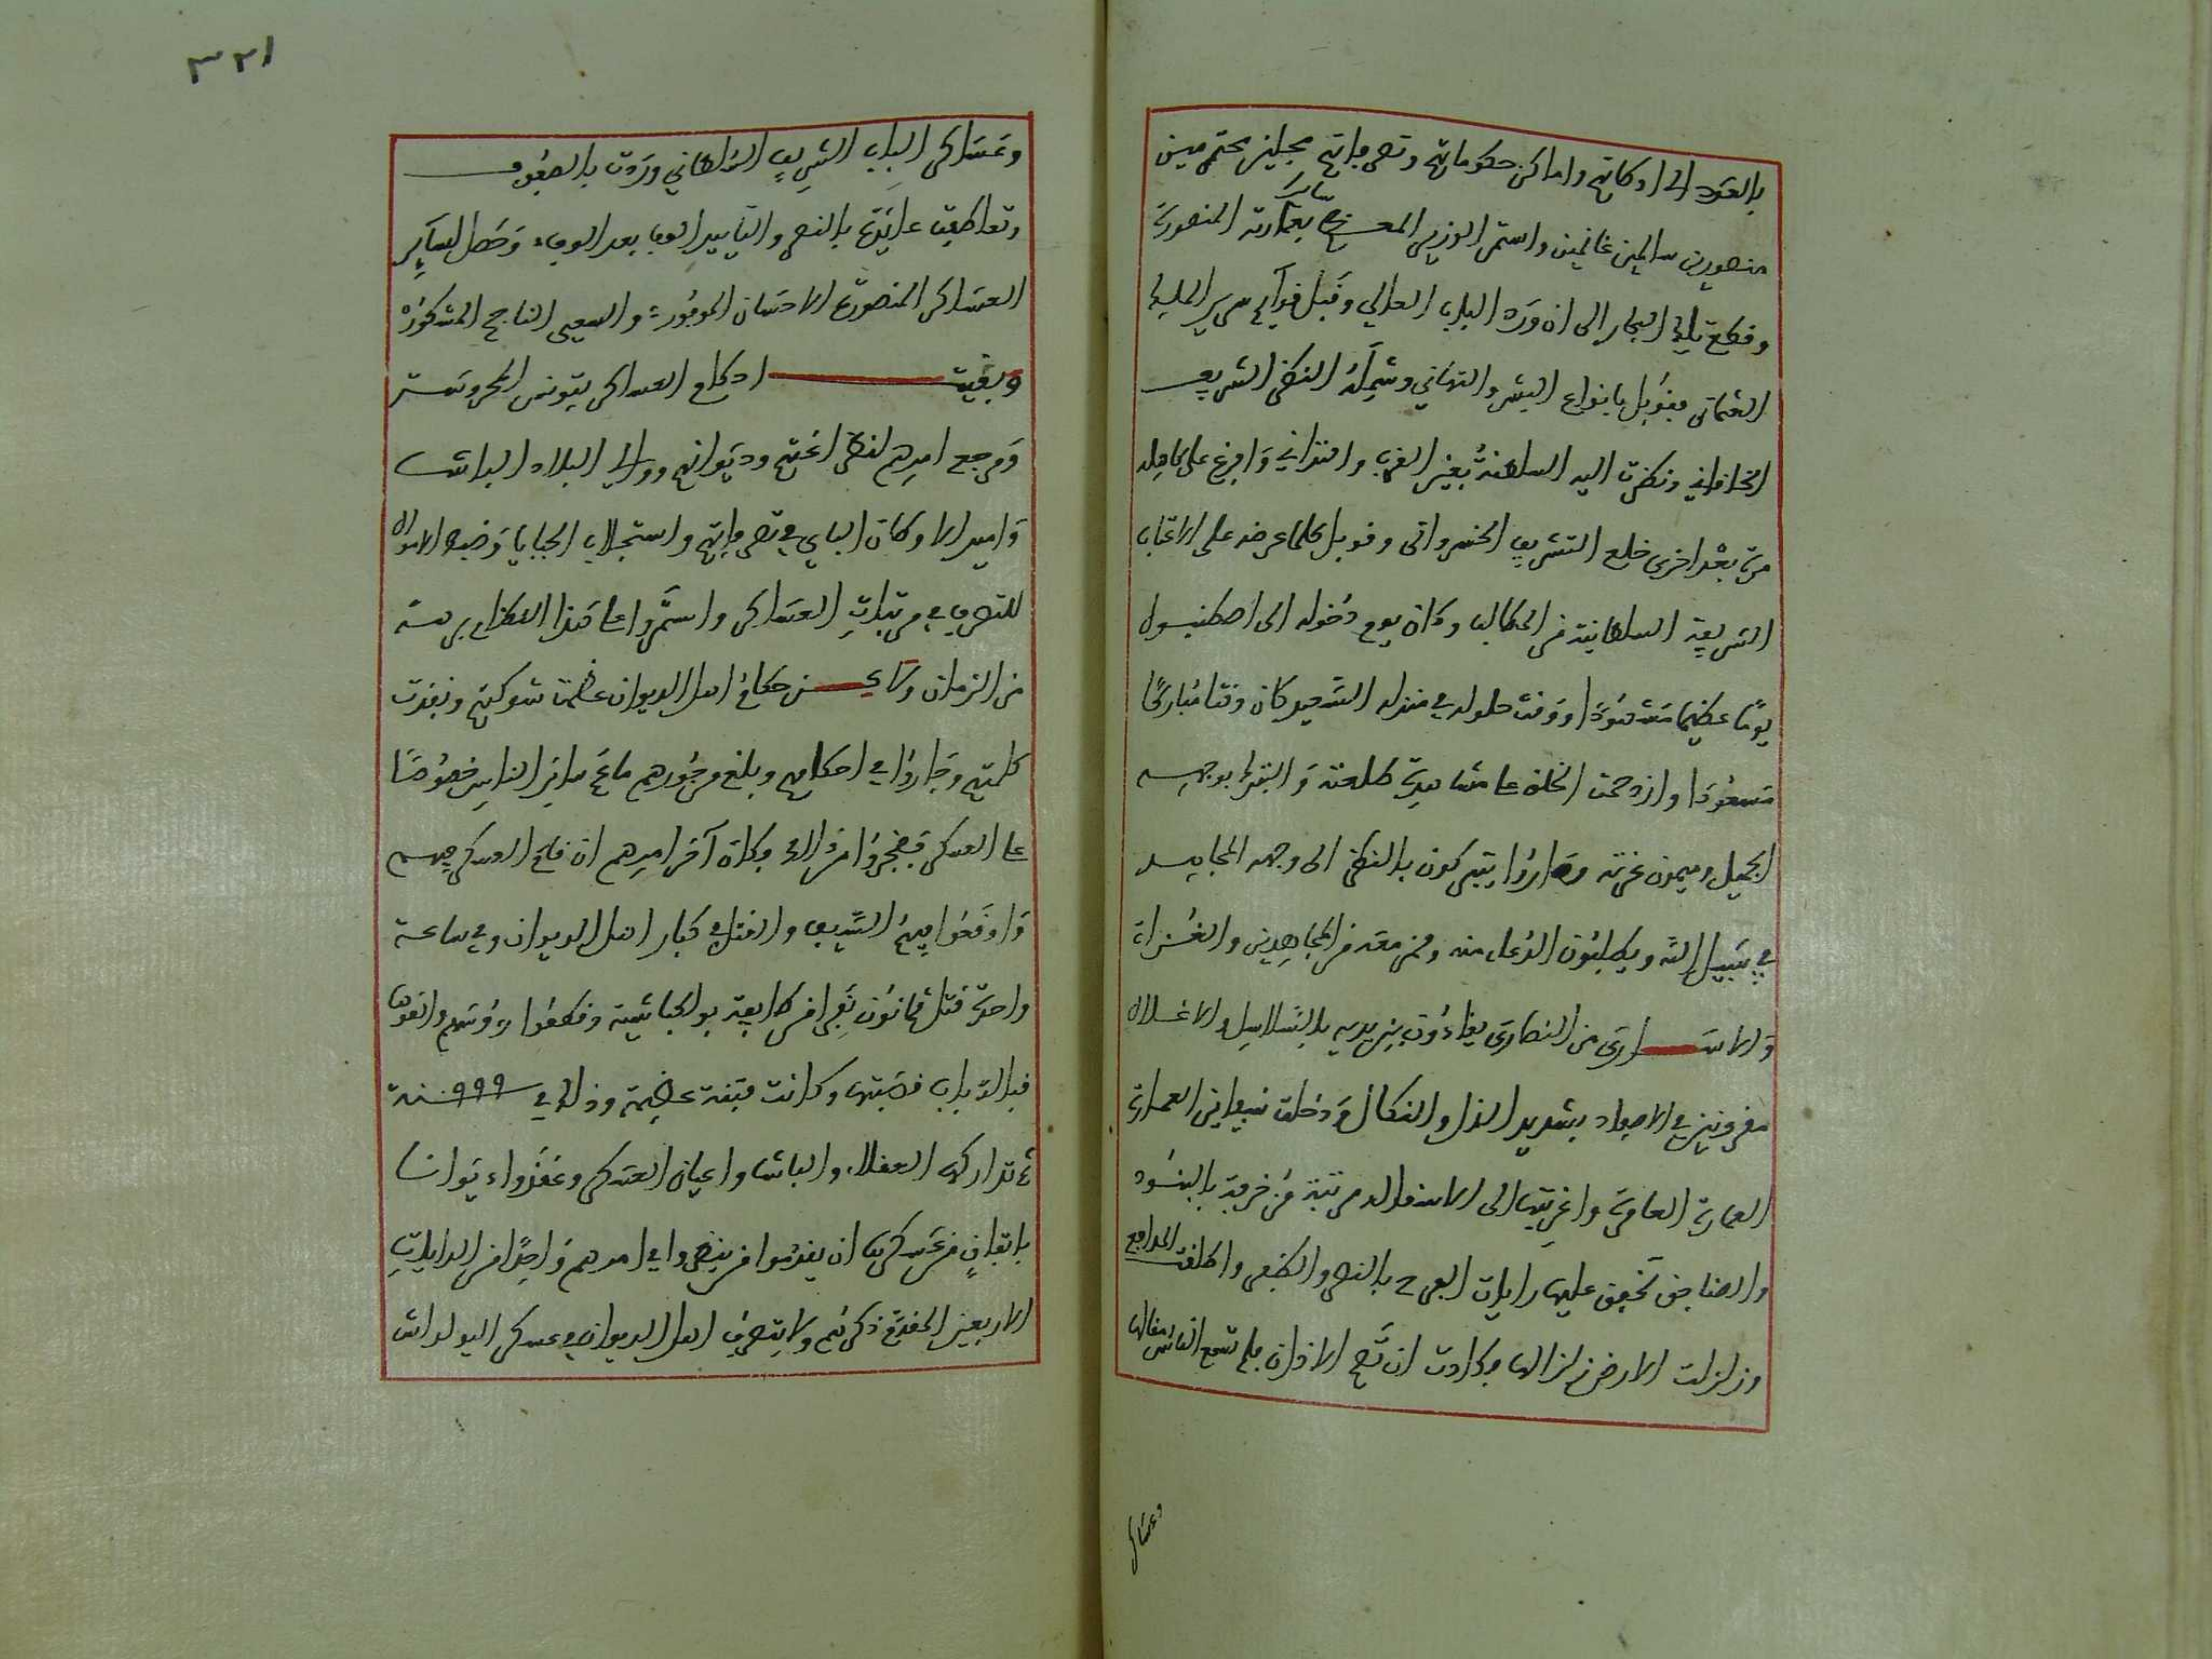 بالعود الى اوطانهم واماكن حكوماتهم وتصرفاتهم مبجلين محترمين
منصورين سالمين غانمين واستمر الوزير المعظم سائرا بعمارته المنصورة
وقطع تلك البحار الى ان ورد الباب العالي وقبل قوآيم سرير الملك
العثماني فقوبل بانواع البشر والتهاني وشمله النظر الشريف
الخاقاني ونظرت اليه السلطنة بعين القرب والتداني وافرغ على كاهله
مرة بعد اخرى خلع التشريف الخسرواني وقوبل كلما عرضه على الاعتاب
الشريفة السلطانية من المطالب وكان يوم دخوله الى اصطنبول
يوما عظيما مشهودا ووقت حلوله في منزله السعيد كان وقتا مباركا
مسعودا وازدحمت الخلق على مشاهدة طلعته والتبرك بوجهه
الجميل وميمون غرته وصاروا يتبركون بالنظر الى وجهه المجاهد
في سبيل الله ويطلبون الدعاء منه وممن معه من المجاهدين والغزاة
والاسارى من النصارى يقادون بين يديه بالسلاسل والاغلال
مقرونين في الاصفاد بشديد الذل والنكال ودخلت سفاين العمارة
العمارة العامرة واغربتها الى الاسقاله مرتبة مزخرفة بالبنود
والصناجق تخفق عليها رايات الفرح بالنصر والظفر واطلقت المدافع
وزلزلت الارض زلزالها وكادت ان تصم الاذان فلم تسمع الناس مقالها
وعساكر
٣٢١
وعساكر الباب الشريف السلطاني وردت بالصفوف
وتعاطفت عايدة بالنصر والتاييد الوفا بعد الوف وحصل لسآير
العساكر المنصورة الاحسان الموفورة والسعي الناجح المشكورة
وبقيت اوطاع العساكر بتونس المحروسة
ومرجع امرهم لنظر اغتهم وديوانهم ووالي البلاد الباشا
وامير الاوطان الباي في تصرفاتهم واستجلاب الجبايا وضبط الاموال
للتصرف في مرتبات العساكر واستمروا على هذا النظام برهة
من الزمان ولاكن حكام اهل الديوان عظمت شوكتهم ونفذت
كلمتهم وجاروا في احكامهم وبلغ من جورهم ما عم ساير الناس خصوصا
على العسكر فضجروا من ذلك وكان آخر امرهم ان قام العسكر عليهم
واوقعوا فيهم السيف والقتل في كبار اهل الديوان وفي ساعة
واحدة قتل ثمانون نفرا من طايفة بولكباشية وقطعوا رؤوسهم والقوها
قبالة باب قصبتها وكانت فتنة عظيمة وذلك في سنة ٩٩٩
ثم تداركه العقلاء والباشا واعيان العسكر وعقدوا ديوانا
باتفان من عسكرها ان يقدموا من ينظروا في امرهم واحدا من الدايات
الاربعين المقدم ذكرهم ولا يتصرف اهل الديوان في عسكر اليولداش